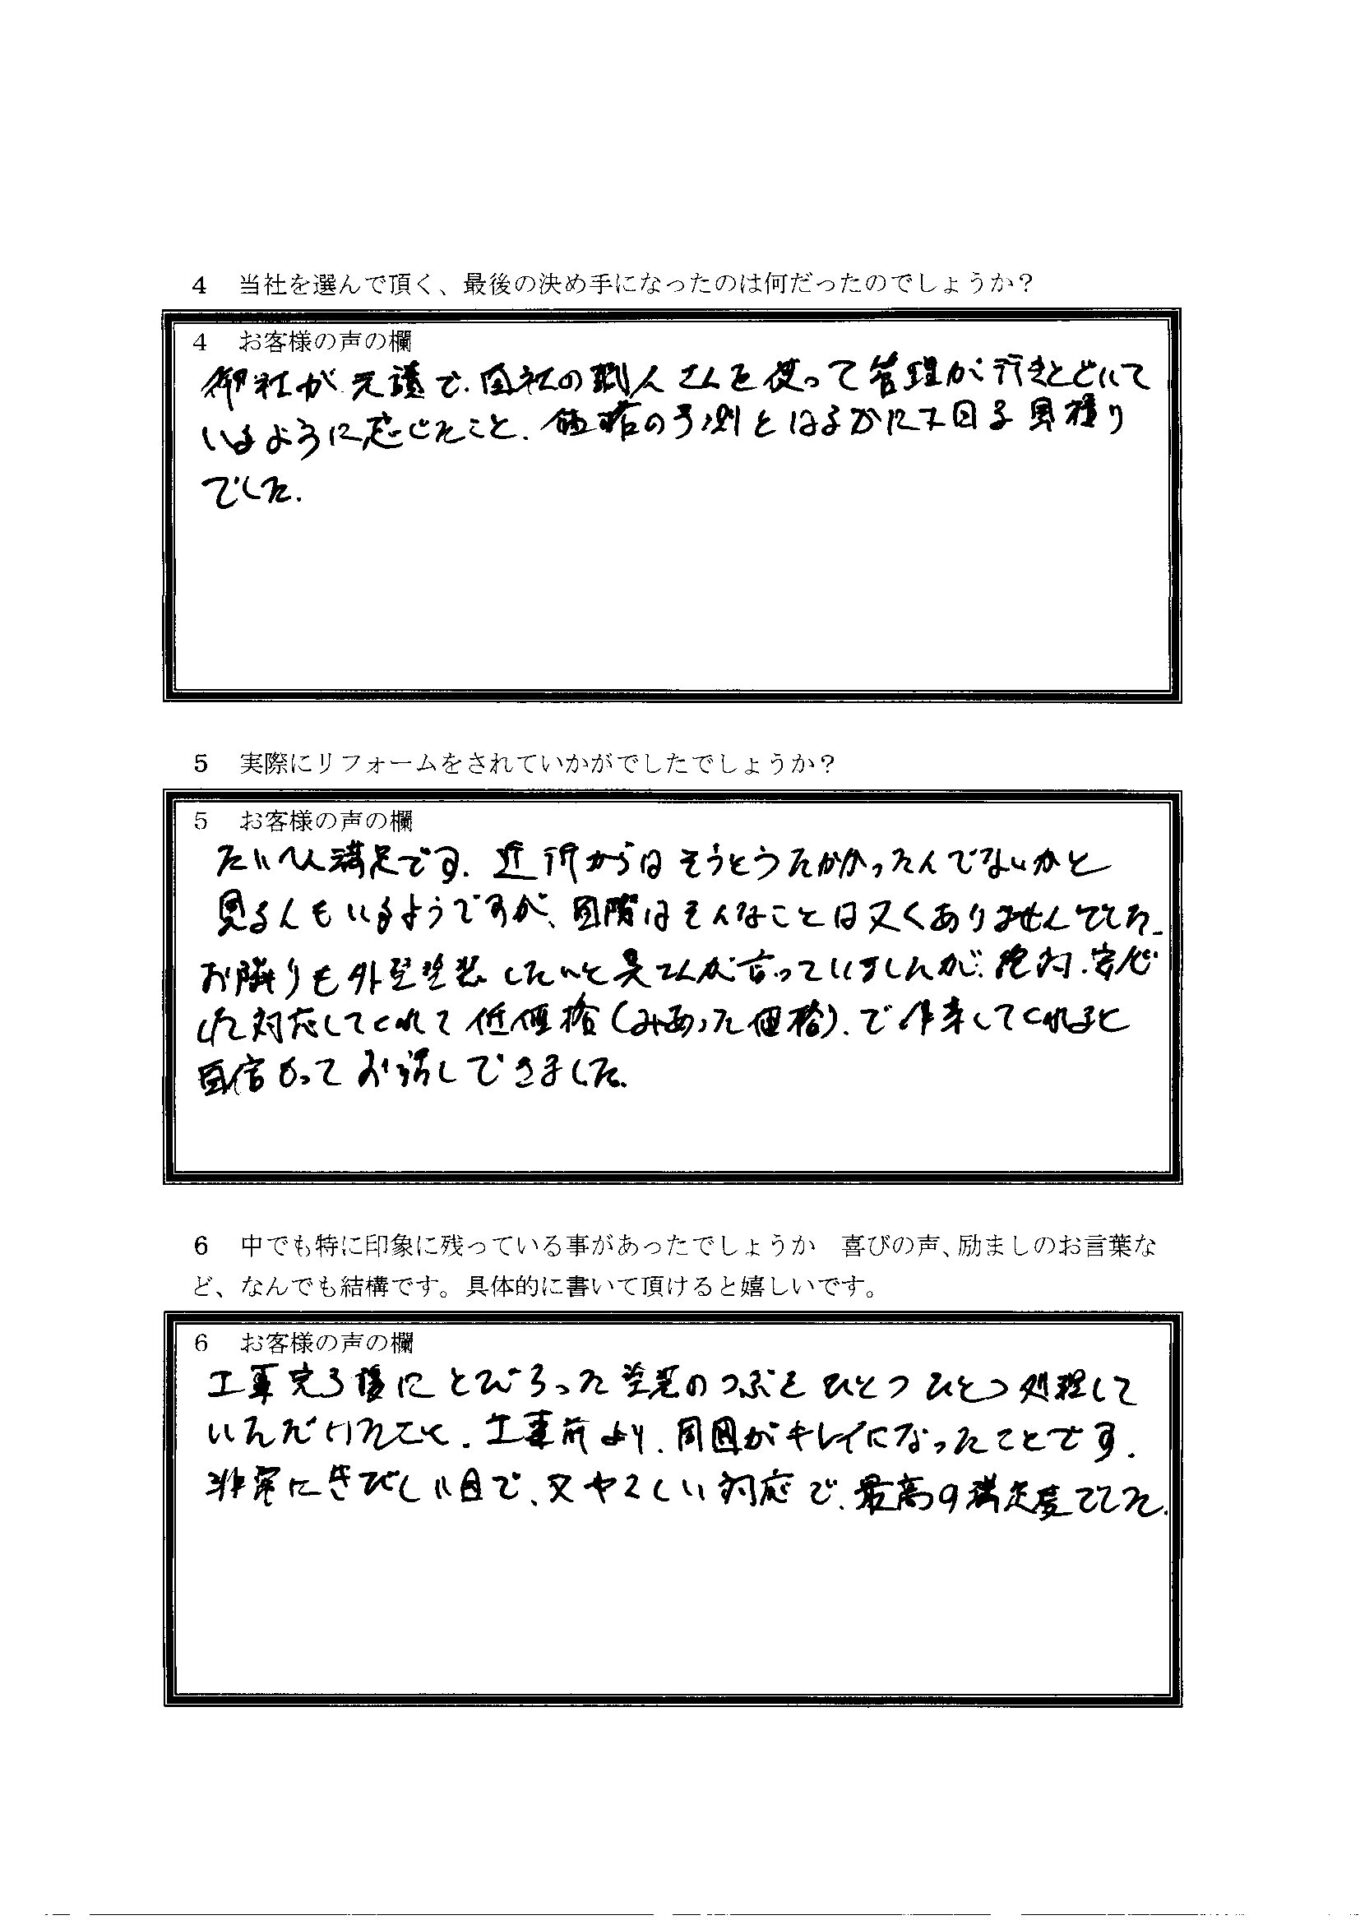 4 当社を選んで頂く、最後の決め手になったのは何だったのでしょうか?
4 お客様の声の欄
御社が元請で、自社の職人さんを使って管理が行きとどいて
いるように感じたこと、価格の予測とはるかに下回る見積り
でした。
5 実際にリフォームをされていかがでしたでしょうか?
5 お客様の声の欄
たいへん満足です。近所からはそうとうたかかったんでないかと
見る人もいるようですが、実際はそんなことは又くありませんでした。
お隣りも外壁塗装したいと奥さんが言っていましたが、絶対、安心
した対応してくれて低価格(みあった価格)、で作業してくれると
自信もってお話しできました。
6 中でも特に印象に残っている事があったでしょうか 喜びの声、励ましのお言葉な
ど、なんでも結構です。具体的に書いて頂けると嬉しいです。
6 お客様の声の欄
工事完了後にとびちった塗装のつぶをひとつひとつ処理して
いただけたこと、工事前より、周囲がキレイになったことです。
非常にきびしい目で、又やさしい対応で、最高の満足度でした。